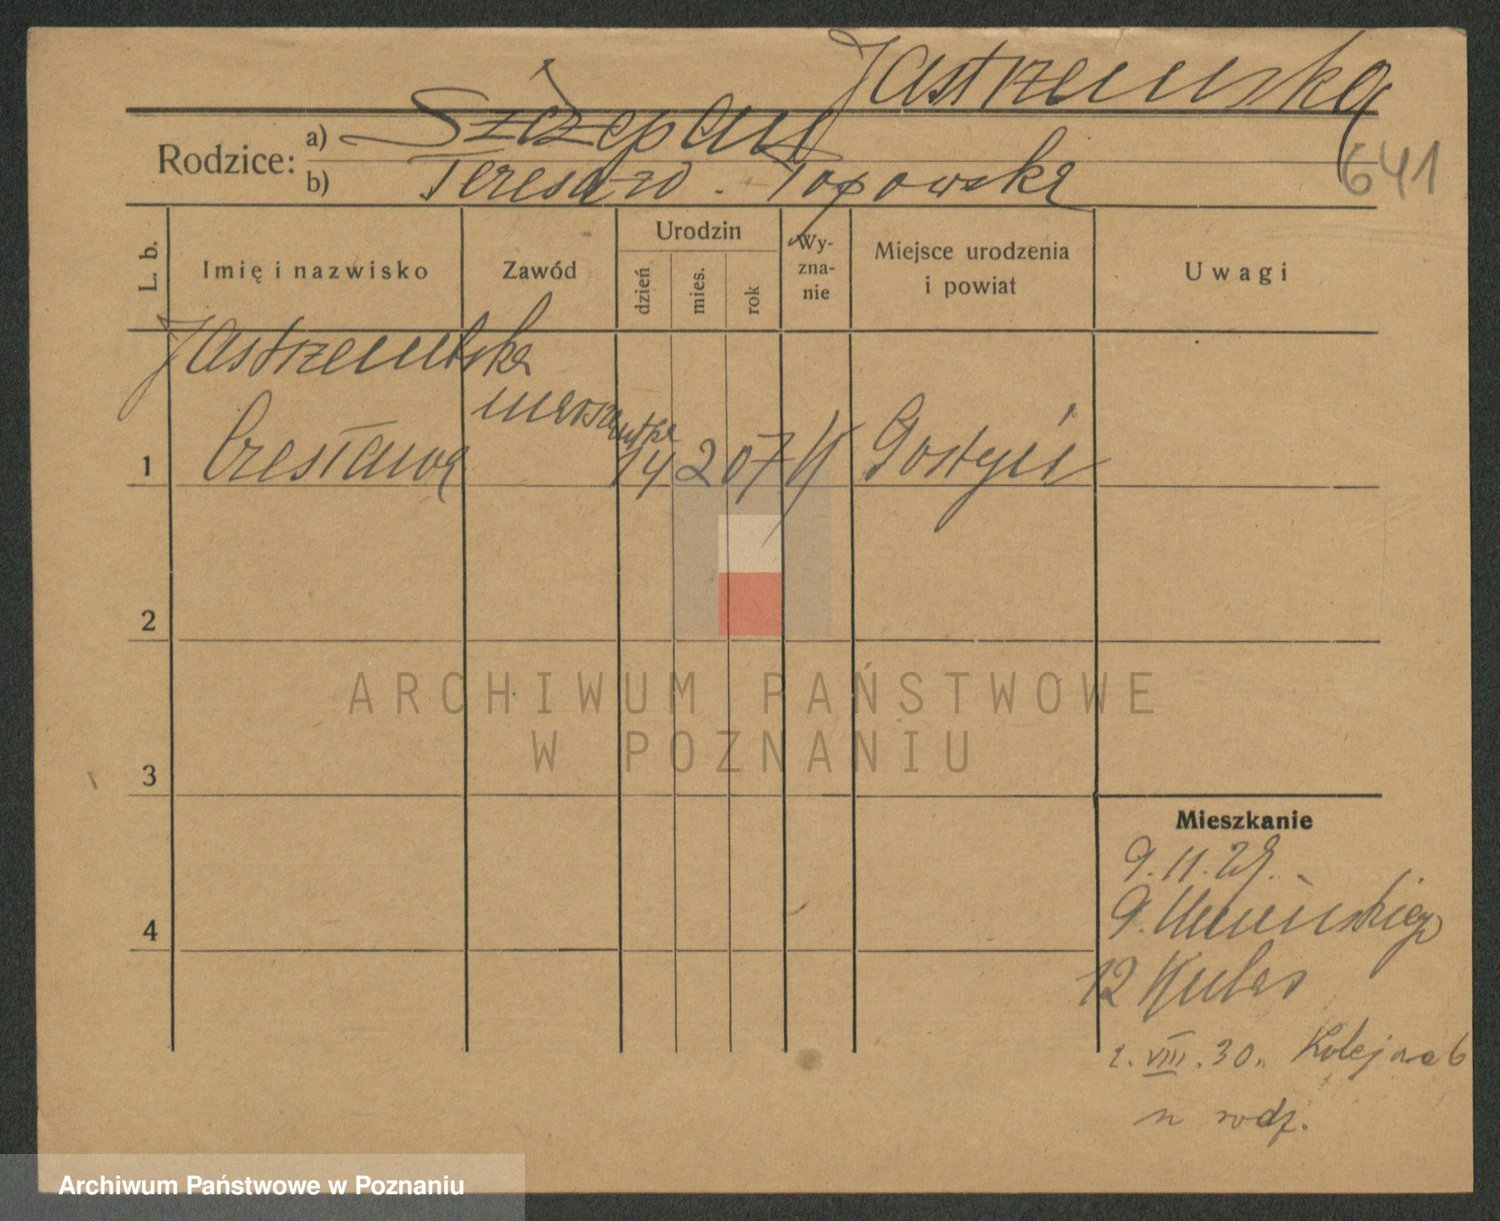 Jastrzemska
Rodzice: a) Szczepan
b) Teresa zd. Topowska
641
L. b.
Imię i nazwisko
Zawód
Urodzin
dzień
mies.
rok
Wy-
zna-
nie
Miejsce urodzenia
i powiat
Uwagi
Jastrzembska
1 Czesława 14 2 07 K Gostyń
2
3
4
Mieszkanie
9.11.29.
12 Kubas
2. VIII. 30. Kolejowa 6
u rodz.
ARCHIWUM PAŃSTWOWE
W POZNANIU
Archiwum Państwowe w Poznaniu